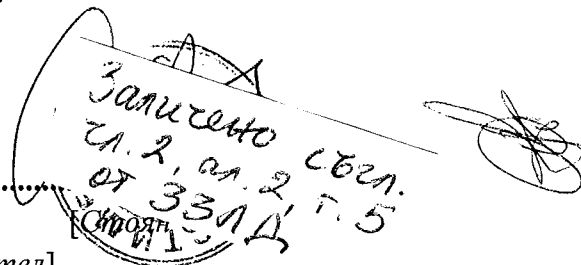 Заличено съгл.
чл. 2, ал. 2, т. 5
от ЗЗЛД
[Стоян